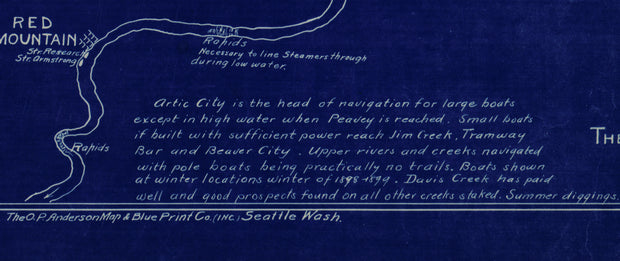 RED
MOUNTAIN
Str. Research
Str. Armstrong
Rapids
Necessary to line Steamers through
during low water.
Rapids
Artic City is the head of navigation for large boats
except in high water when Peavey is reached. Small boats
if built with sufficient power reach Jim Creek, Tramway
Bar and Beaver City. Upper rivers and creeks navigated
with pole boats being practically no trails. Boats shown
at winter locations winter of 1898-1899. Davis Creek has paid
well and good prospects found on all other creeks staked. Summer diggings.
The
The O.P. Anderson Map & Blue Print Co. (INC.) Seattle Wash.